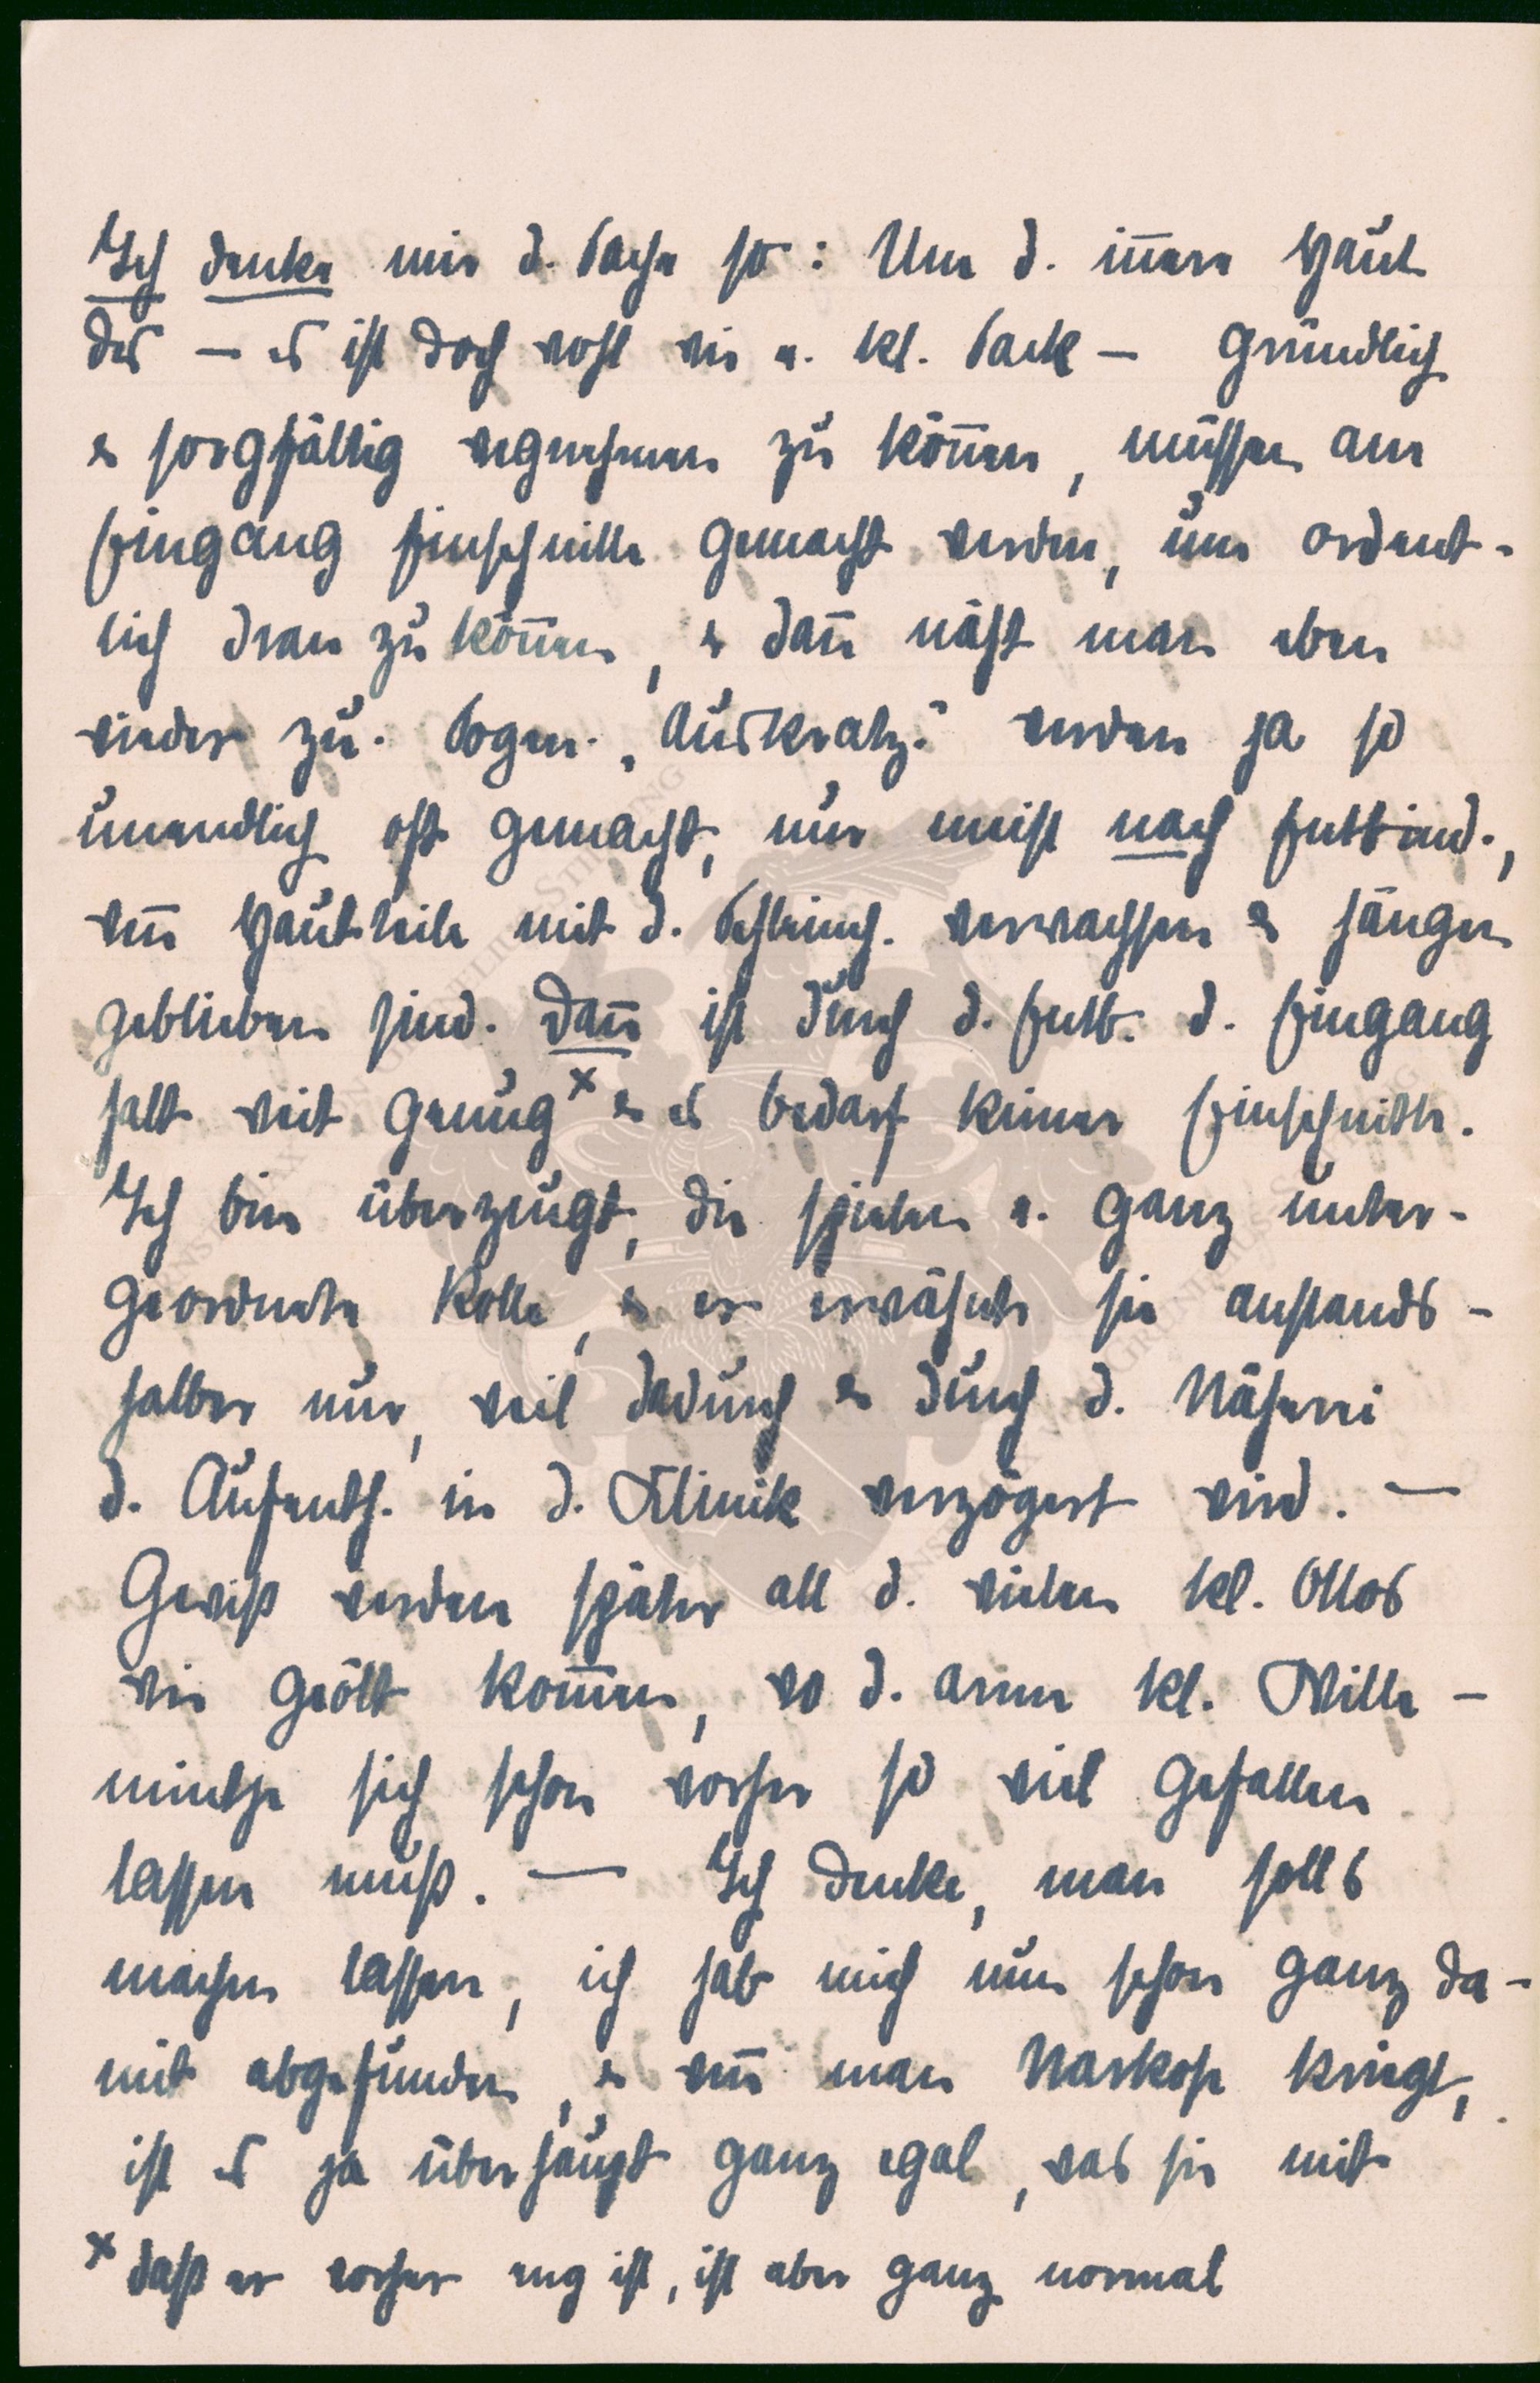 Ich denke mir d. Sache so: Um d. innere Haut
des — es ist doch wohl wie e. kl. Sack — gründlich
& sorgfältig wegnehmen zu können, müssen am
Eingang Einschnitte gemacht werden, um ordent-
lich dran zu können, & dann näht man eben
wieder zu. Sogen. „Auskratz.“ werden ja so
unendlich oft gemacht, nur meist nach Entbind.,
wenn Hautteile mit d. Schleimh. verwachsen & hängen
geblieben sind. Dann ist durch d. Entb. d. Eingang
halt weit genug x & es bedarf keiner Einschnitte.
Ich bin überzeugt, die spielen e. ganz unter-
geordnete Rolle, & er erwähnte sie anstands-
halber nur, weil dadurch & durch d. Näherei
d. Aufenth. in d. Klinik verzögert wird. —
Gewiß werden später all d. vielen kl. Ottos
wie geölt kommen, wo d. arme kl. Wille-
mintje sich schon vorher so viel gefallen
lassen muß. — Ich denke, man solls
machen lassen, ich hab mich nun schon ganz da-
mit abgefunden, & wenn man Narkose kriegt,
ist es ja überhaupt ganz egal, was sie mit
x daß er vorher eng ist, ist aber ganz normal